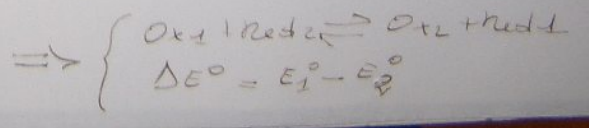 ⇒ { Ox1 + Red2 ⇌ Ox2 + Red1
ΔE° = E₁° - E₂°